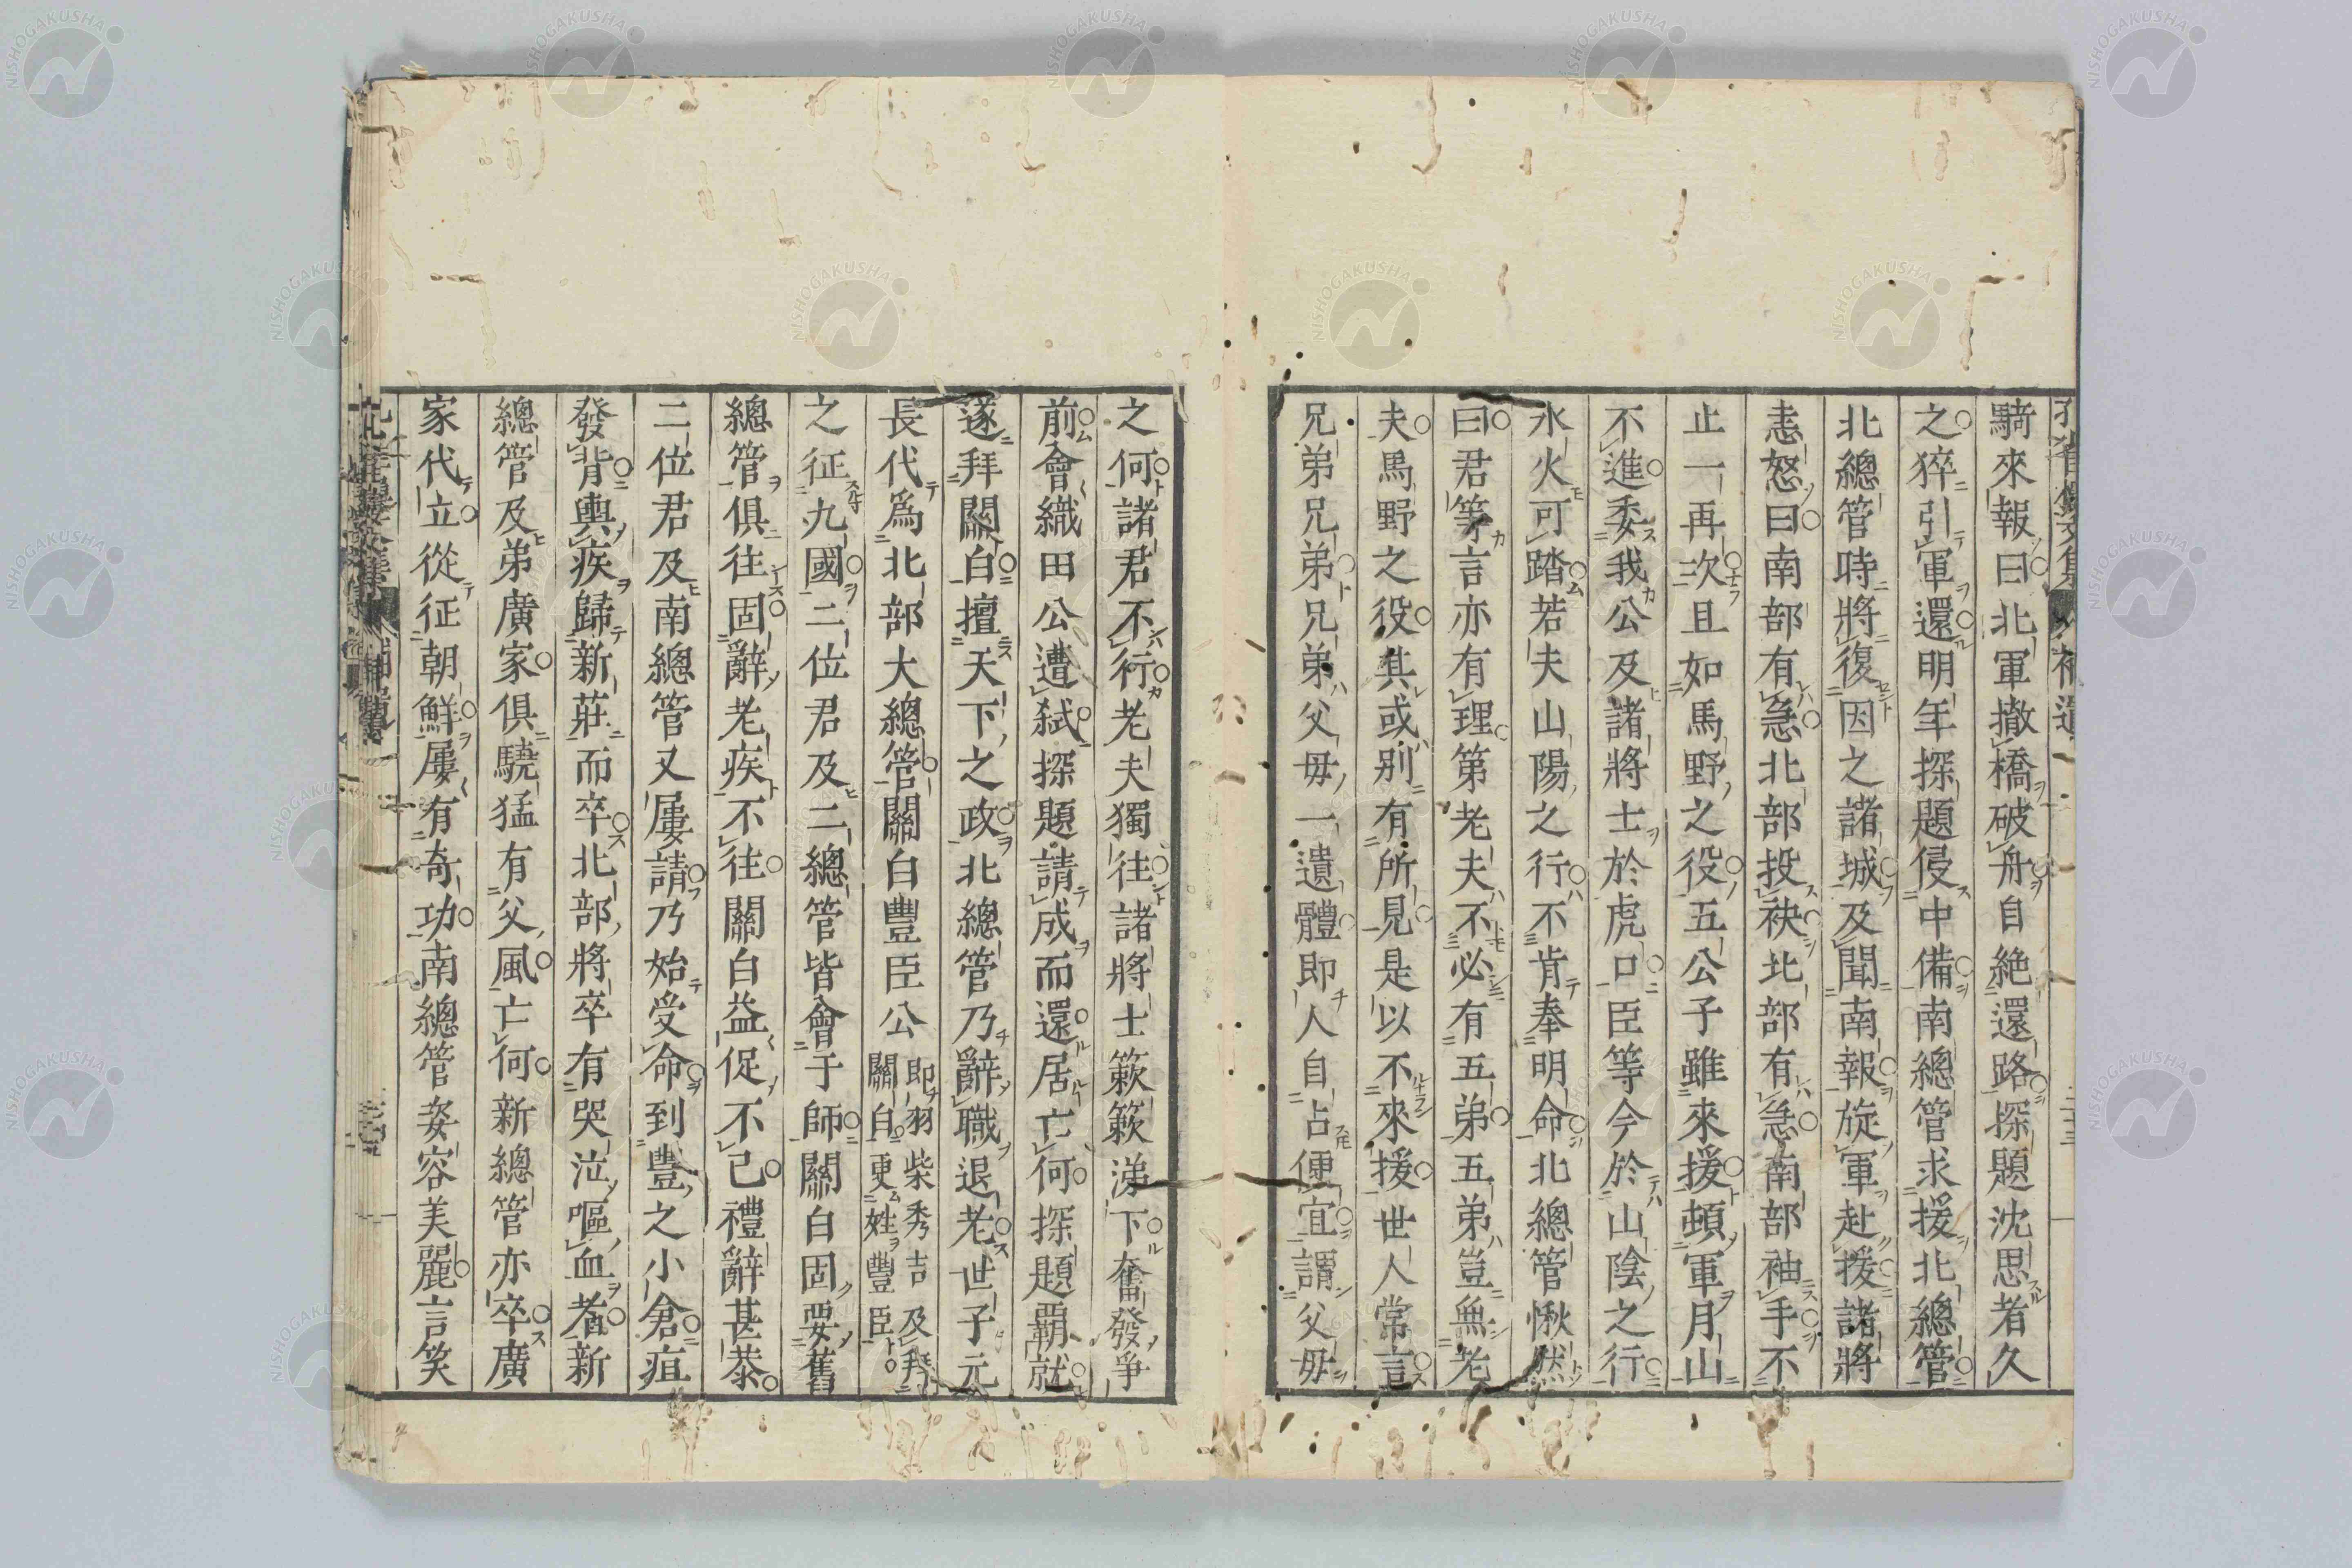 騎來報曰北軍撤橋破舟自絶還路探題沈思者久
之猝引軍還明年探題侵中備南總管求援北總管
北總管時將復因之諸城及聞南報旋軍赴援諸將
恚怒曰南部有急北部投袂北部有急南部袖手不
止一再次且如馬野之役五公子雖來援頓軍月山
不進委我公及諸將士於虎口臣等今於山陰之行
水火可踏若夫山陽之行不肯奉明命北總管愀然
曰君等言亦有理第老夫不必有五弟五弟豈無老
夫馬野之役其或別有所見是以不來援世人常言
兄弟兄弟兄弟父母一遺體即人自占便宜謂父母
之何諸君不行老夫獨往諸將士簌簌涕下奮發爭
前會織田公遭弑探題請成而還居亡何探題覇就
遂拜關白擅天下之政北總管乃辭職退老世子元
長代爲北部大總管關白豐臣公即羽柴秀吉及拜關白更姓豐臣
之征九國二位君及二總管皆會于師關白固要舊
總管俱往固辭老疾不往關白益促不已禮辭甚恭
二位君及南總管又屢請乃始受命到豐之小倉疽
發背輿疾歸新莊而卒北部將卒有哭泣嘔血者新
總管及弟廣家俱驍猛有父風亡何新總管亦卒廣
家代立從征朝鮮屢有奇功南總管姿容美麗言笑